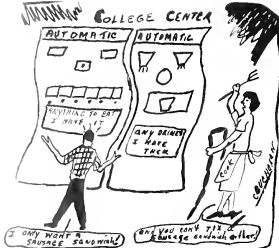 COLLEGE CENTER
AUTOMATIC
AUTOMATIC
ANYTHING TO EAT
I HAVE IT
ANY DRINKS
I HAVE
THEM
COOK
I ONLY WANT A
SAUSAGE SANDWICH!
AND YOU CAN'T FIX A
SAUSAGE SANDWICH EITHER!